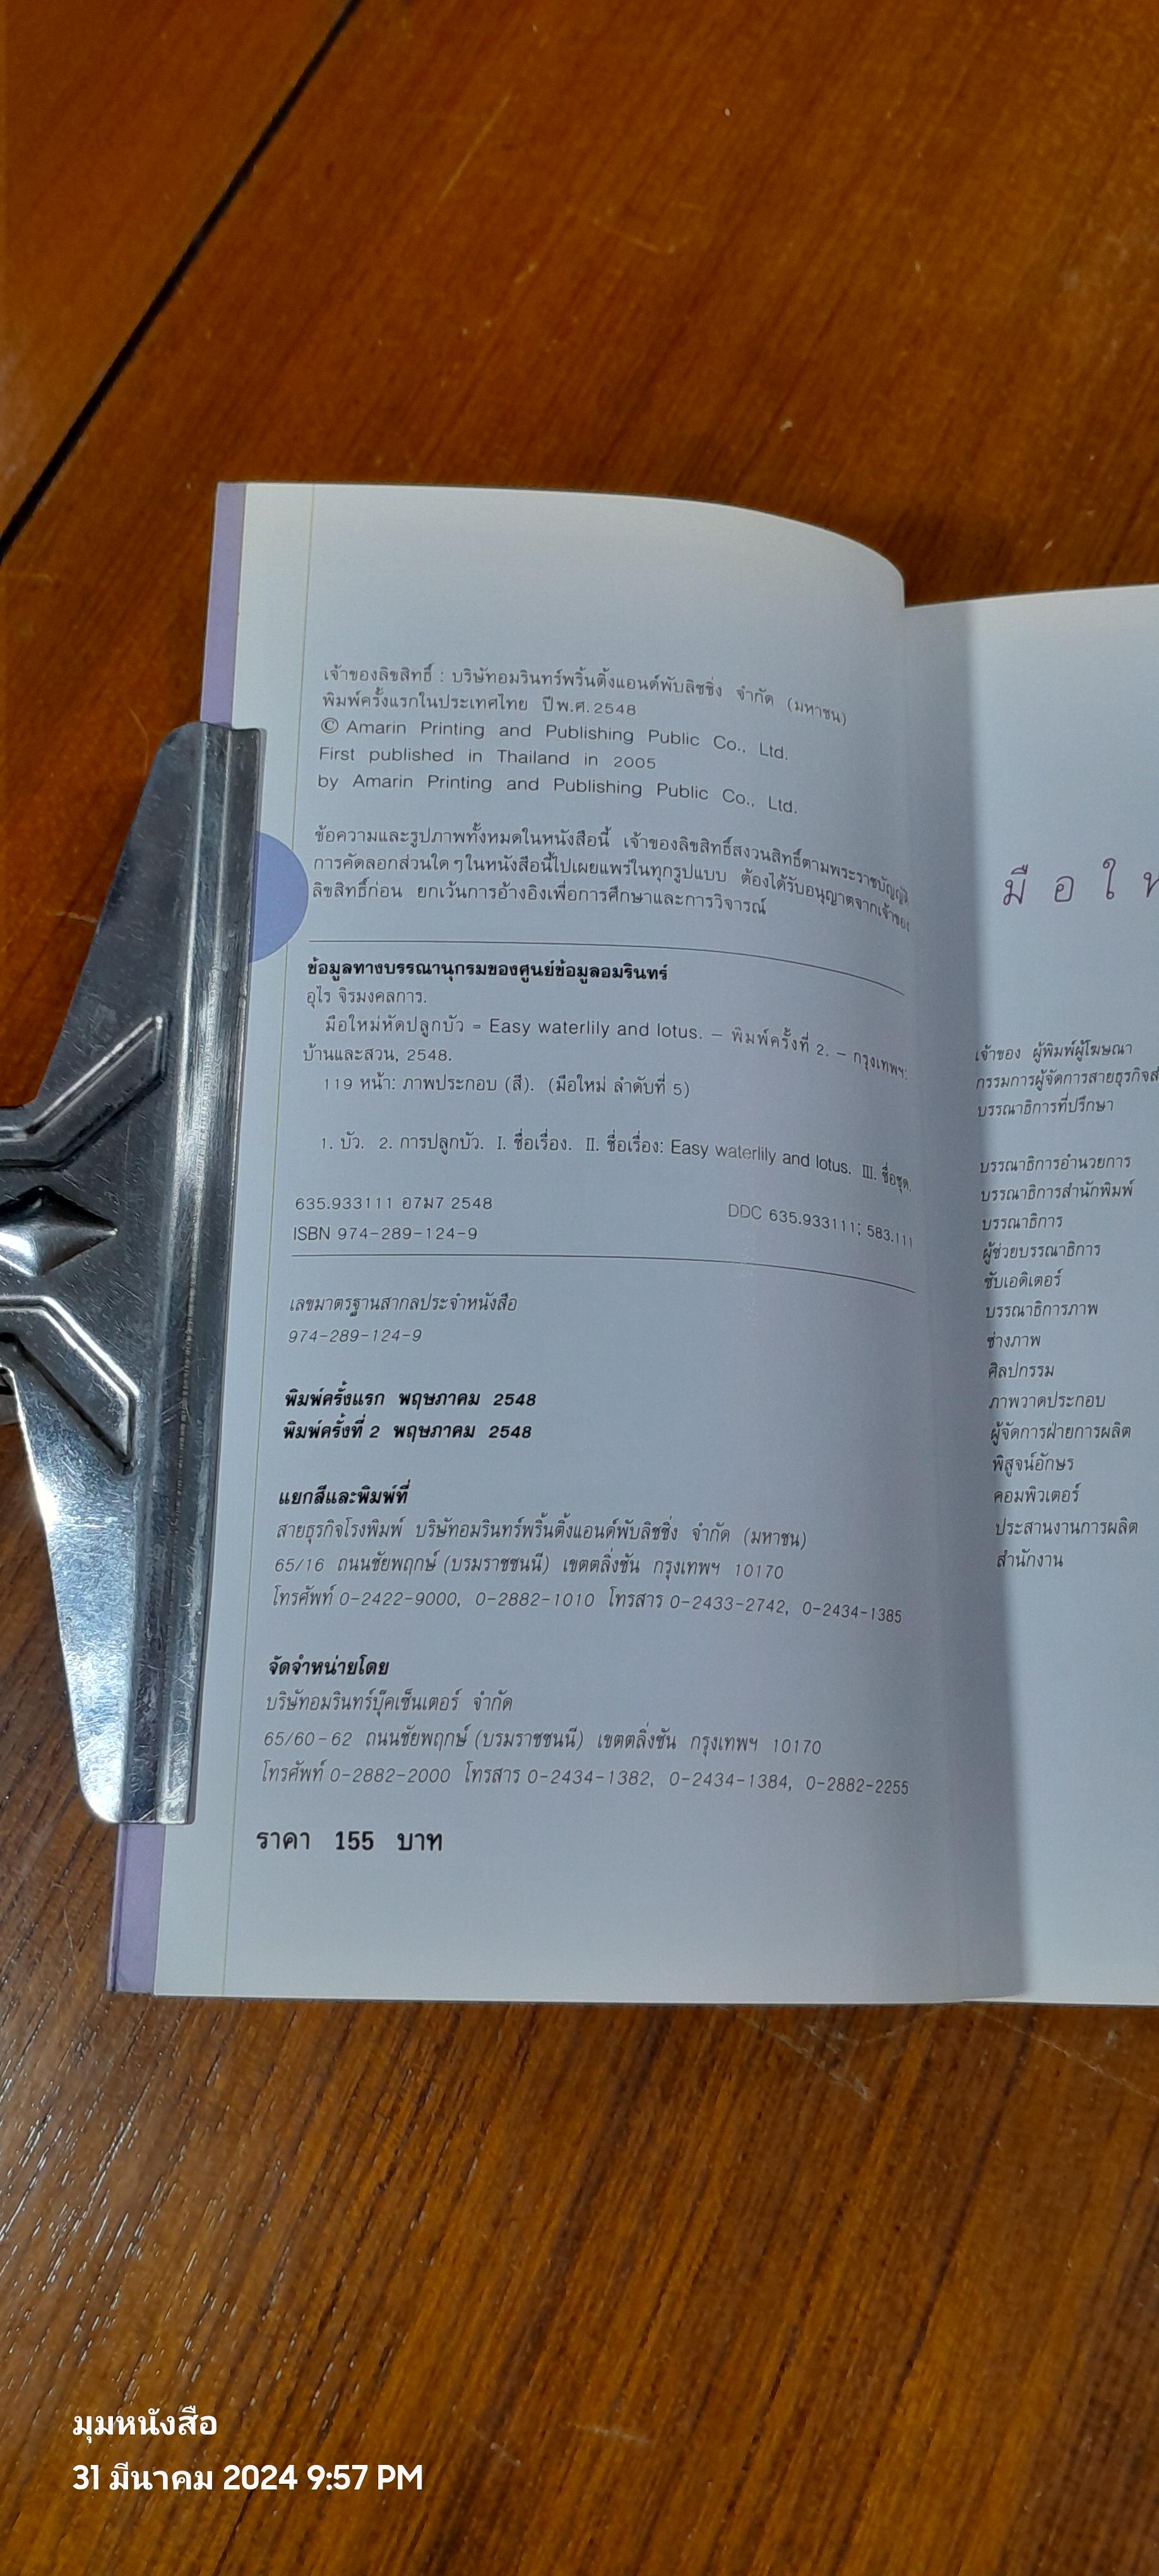 เจ้าของลิขสิทธิ์ : บริษัทอมรินทร์พริ้นติ้งแอนด์พับลิชชิ่ง จำกัด (มหาชน)
พิมพ์ครั้งแรกในประเทศไทย ปีพ.ศ.2548
© Amarin Printing and Publishing Public Co., Ltd.
First published in Thailand in 2005
by Amarin Printing and Publishing Public Co., Ltd.
ข้อความและรูปภาพทั้งหมดในหนังสือนี้ เจ้าของลิขสิทธิ์สงวนสิทธิ์ตามพระราชบัญญัติ
การคัดลอกส่วนใดๆในหนังสือนี้ไปเผยแพร่ในทุกรูปแบบ ต้องได้รับอนุญาตจากเจ้าของ
ลิขสิทธิ์ก่อน ยกเว้นการอ้างอิงเพื่อการศึกษาและการวิจารณ์
ข้อมูลทางบรรณานุกรมของศูนย์ข้อมูลอมรินทร์
อุไร จิรมงคลการ.
มือใหม่หัดปลูกบัว = Easy waterlily and lotus. – พิมพ์ครั้งที่ 2. – กรุงเทพฯ:
บ้านและสวน, 2548.
119 หน้า: ภาพประกอบ (สี). (มือใหม่ ลำดับที่ 5)
1. บัว. 2. การปลูกบัว. I. ชื่อเรื่อง. II. ชื่อเรื่อง: Easy waterlily and lotus. III. ชื่อชุด.
635.933111 อ7ม7 2548 DDC 635.933111; 583.111
ISBN 974-289-124-9
เลขมาตรฐานสากลประจำหนังสือ
974-289-124-9
พิมพ์ครั้งแรก พฤษภาคม 2548
พิมพ์ครั้งที่ 2 พฤษภาคม 2548
แยกสีและพิมพ์ที่
สายธุรกิจโรงพิมพ์ บริษัทอมรินทร์พริ้นติ้งแอนด์พับลิชชิ่ง จำกัด (มหาชน)
65/16 ถนนชัยพฤกษ์ (บรมราชชนนี) เขตตลิ่งชัน กรุงเทพฯ 10170
โทรศัพท์ 0-2422-9000, 0-2882-1010 โทรสาร 0-2433-2742, 0-2434-1385
จัดจำหน่ายโดย
บริษัทอมรินทร์บุ๊คเซ็นเตอร์ จำกัด
65/60-62 ถนนชัยพฤกษ์ (บรมราชชนนี) เขตตลิ่งชัน กรุงเทพฯ 10170
โทรศัพท์ 0-2882-2000 โทรสาร 0-2434-1382, 0-2434-1384, 0-2882-2255
ราคา 155 บาท
มือให
เจ้าของ ผู้พิมพ์ผู้โฆษณา
กรรมการผู้จัดการสายธุรกิจส
บรรณาธิการที่ปรึกษา
บรรณาธิการอำนวยการ
บรรณาธิการสำนักพิมพ์
บรรณาธิการ
ผู้ช่วยบรรณาธิการ
ซับเอดิเตอร์
บรรณาธิการภาพ
ช่างภาพ
ศิลปกรรม
ภาพวาดประกอบ
ผู้จัดการฝ่ายการผลิต
พิสูจน์อักษร
คอมพิวเตอร์
ประสานงานการผลิต
สำนักงาน
มุมหนังสือ
31 มีนาคม 2024 9:57 PM